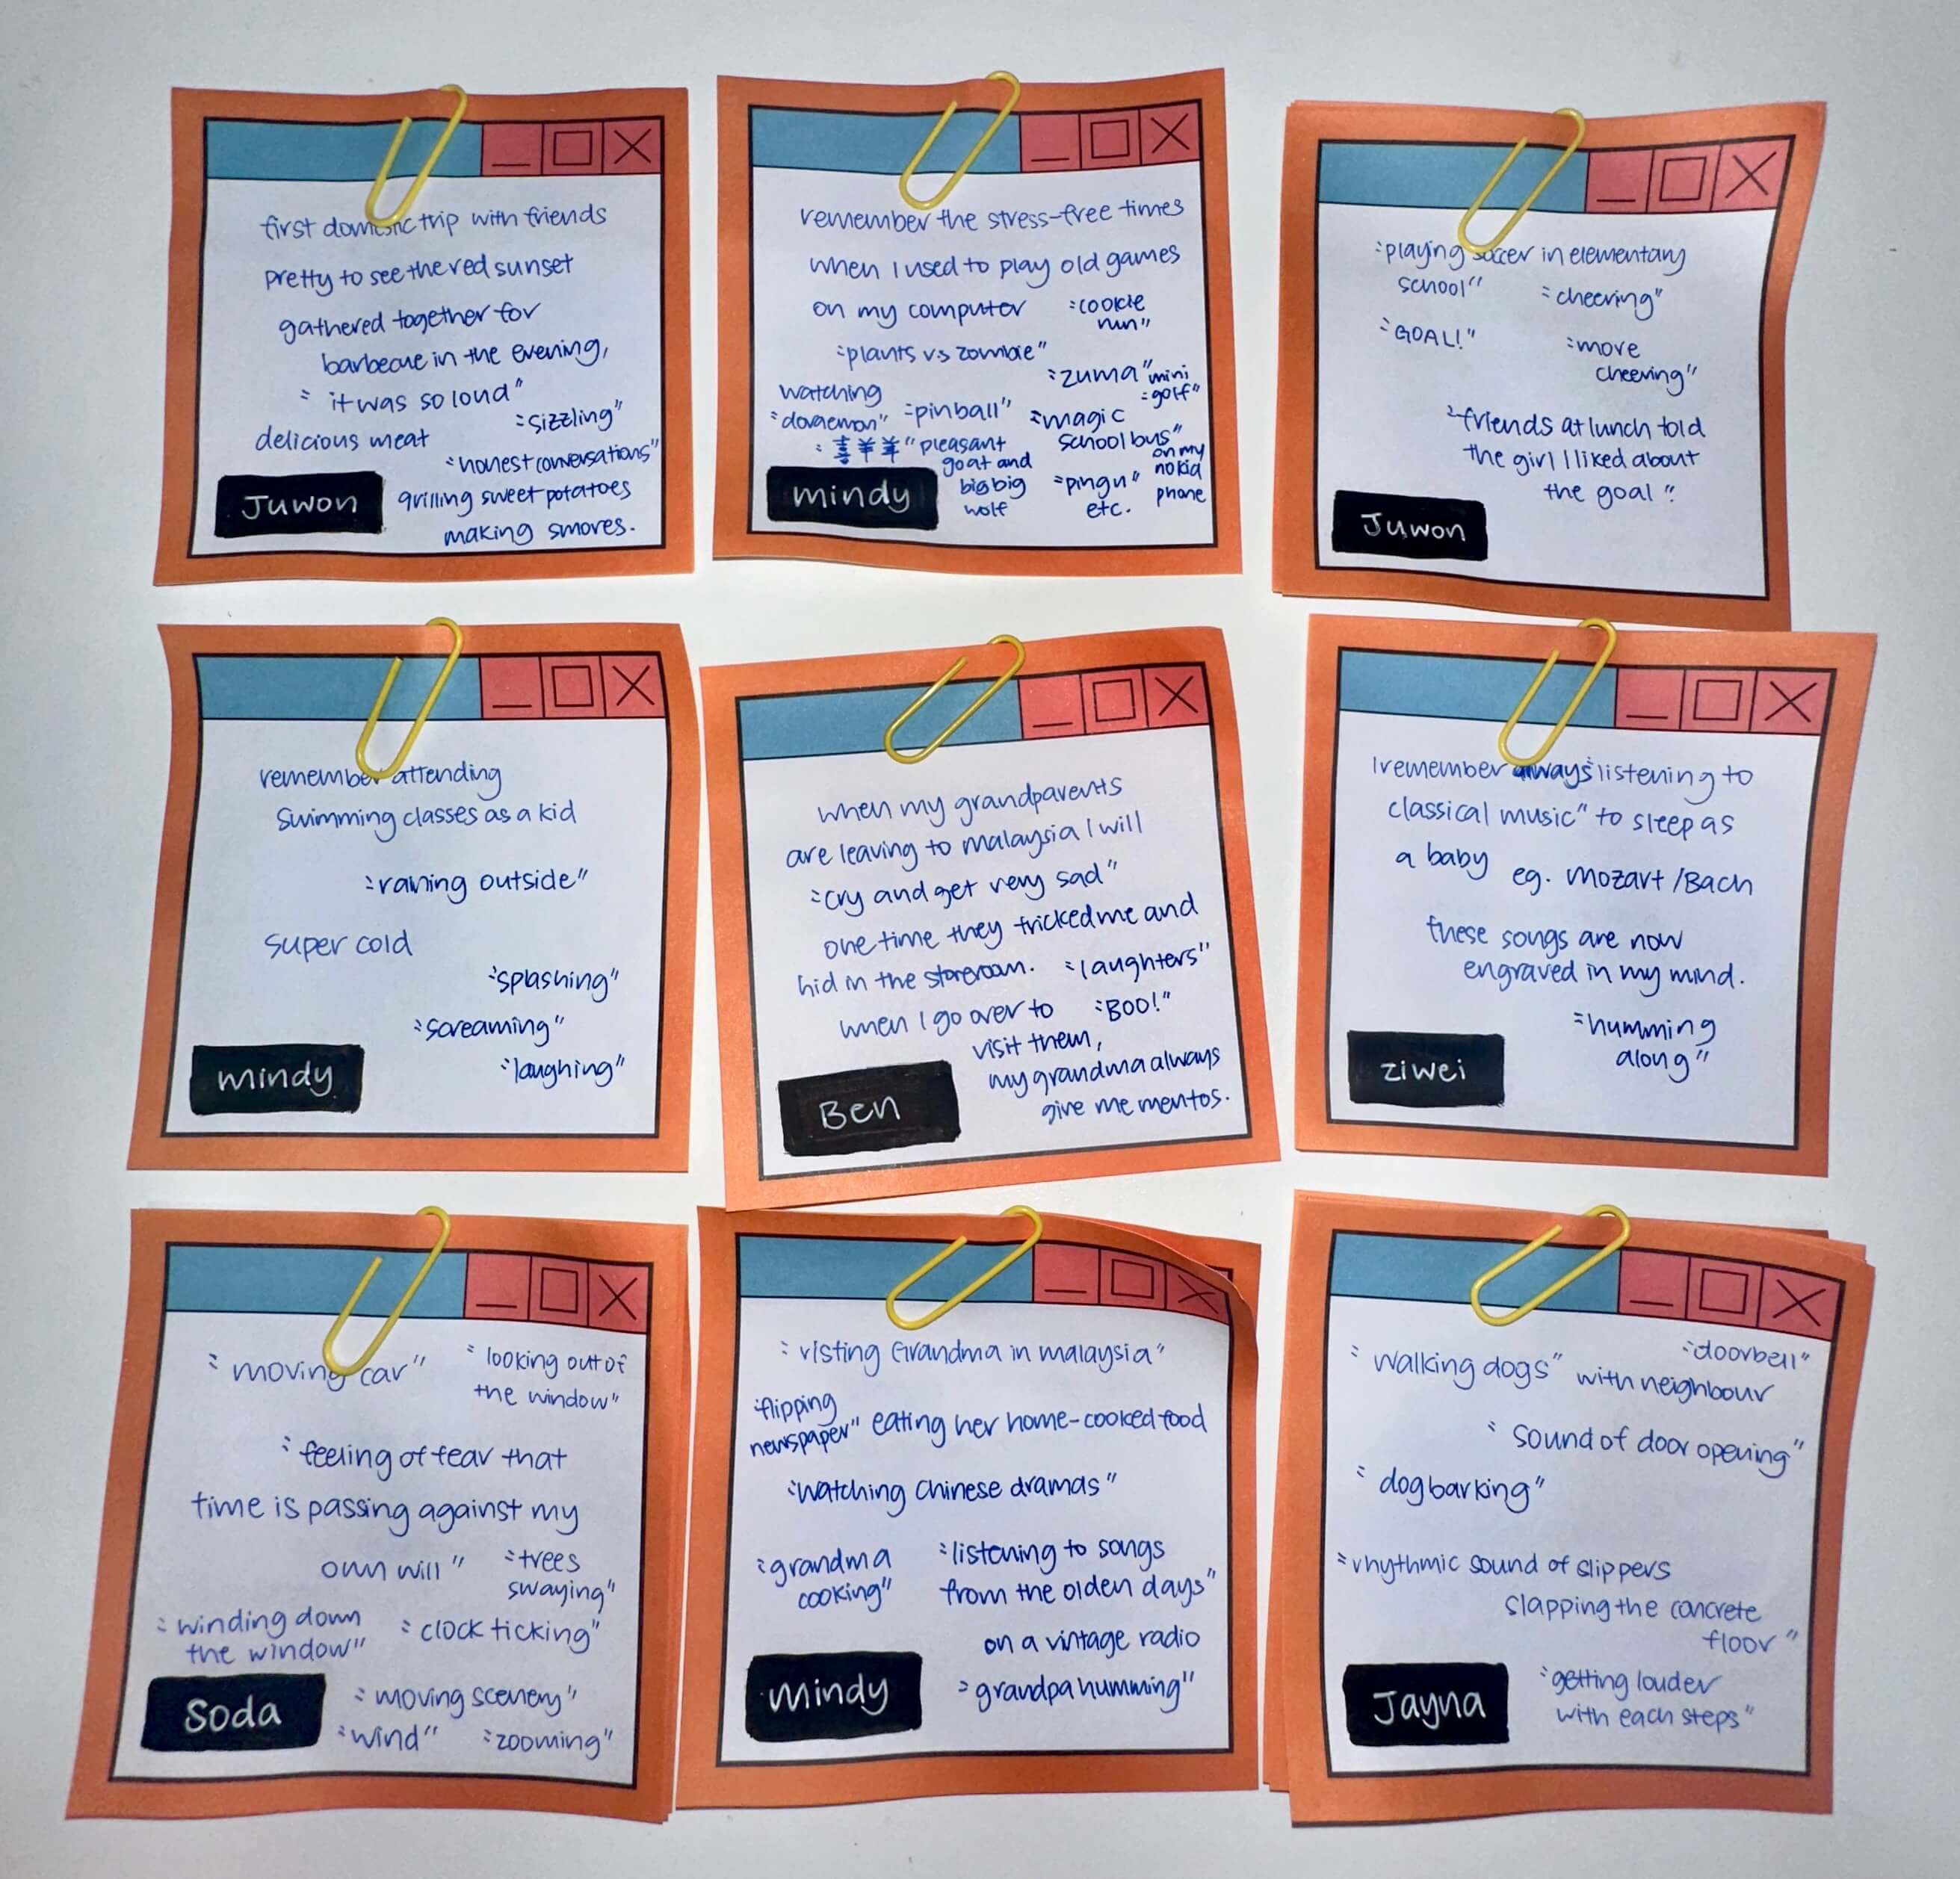 first domestic trip with friends
pretty to see the red sunset
gathered together for
barbecue in the evening,
"it was so loud"
"sizzling"
delicious meat
"honest conversations"
grilling sweet potatoes
making smores.
Juwon
remember the stress-free times
when I used to play old games
on my computer
"cookie
run"
"plants vs zombie"
"zuma"
mini
"golf"
watching
"doraemon"
"pinball"
"magic
school bus"
"喜羊羊" pleasant
goat and
big big
wolf
"pingu"
etc.
on my
nokid
phone
mindy
"playing soccer in elementary
school"
"cheering"
"GOAL!"
"more
cheering"
"friends at lunch told
the girl I liked about
the goal"
Juwon
remember attending
swimming classes as a kid
"raining outside"
super cold
"splashing"
"screaming"
"laughing"
mindy
when my grandparents
are leaving to malaysia I will
"cry and get very sad"
one time they tricked me and
hid in the storeroom.
"laughters"
"BOO!"
when I go over to
visit them,
my grandma always
give me mentos.
Ben
I remember always "listening to
classical music" to sleep as
a baby eg. Mozart/Bach
these songs are now
engraved in my mind.
"humming
along"
ziwei
"moving car"
"looking out of
the window"
"feeling of fear that
time is passing against my
own will"
"trees
swaying"
"winding down
the window"
"clock ticking"
"moving scenery"
"wind"
"zooming"
Soda
"visting Grandma in malaysia"
"flipping
newspaper"
eating her home-cooked food
"watching chinese dramas"
"grandma
cooking"
"listening to songs
from the olden days"
on a vintage radio
"grandpa humming"
Mindy
"walking dogs" with neighbour
"doorbell"
"sound of door opening"
"dog barking"
"rhythmic sound of slippers
slapping the concrete
floor"
"getting louder
with each steps"
Jayna